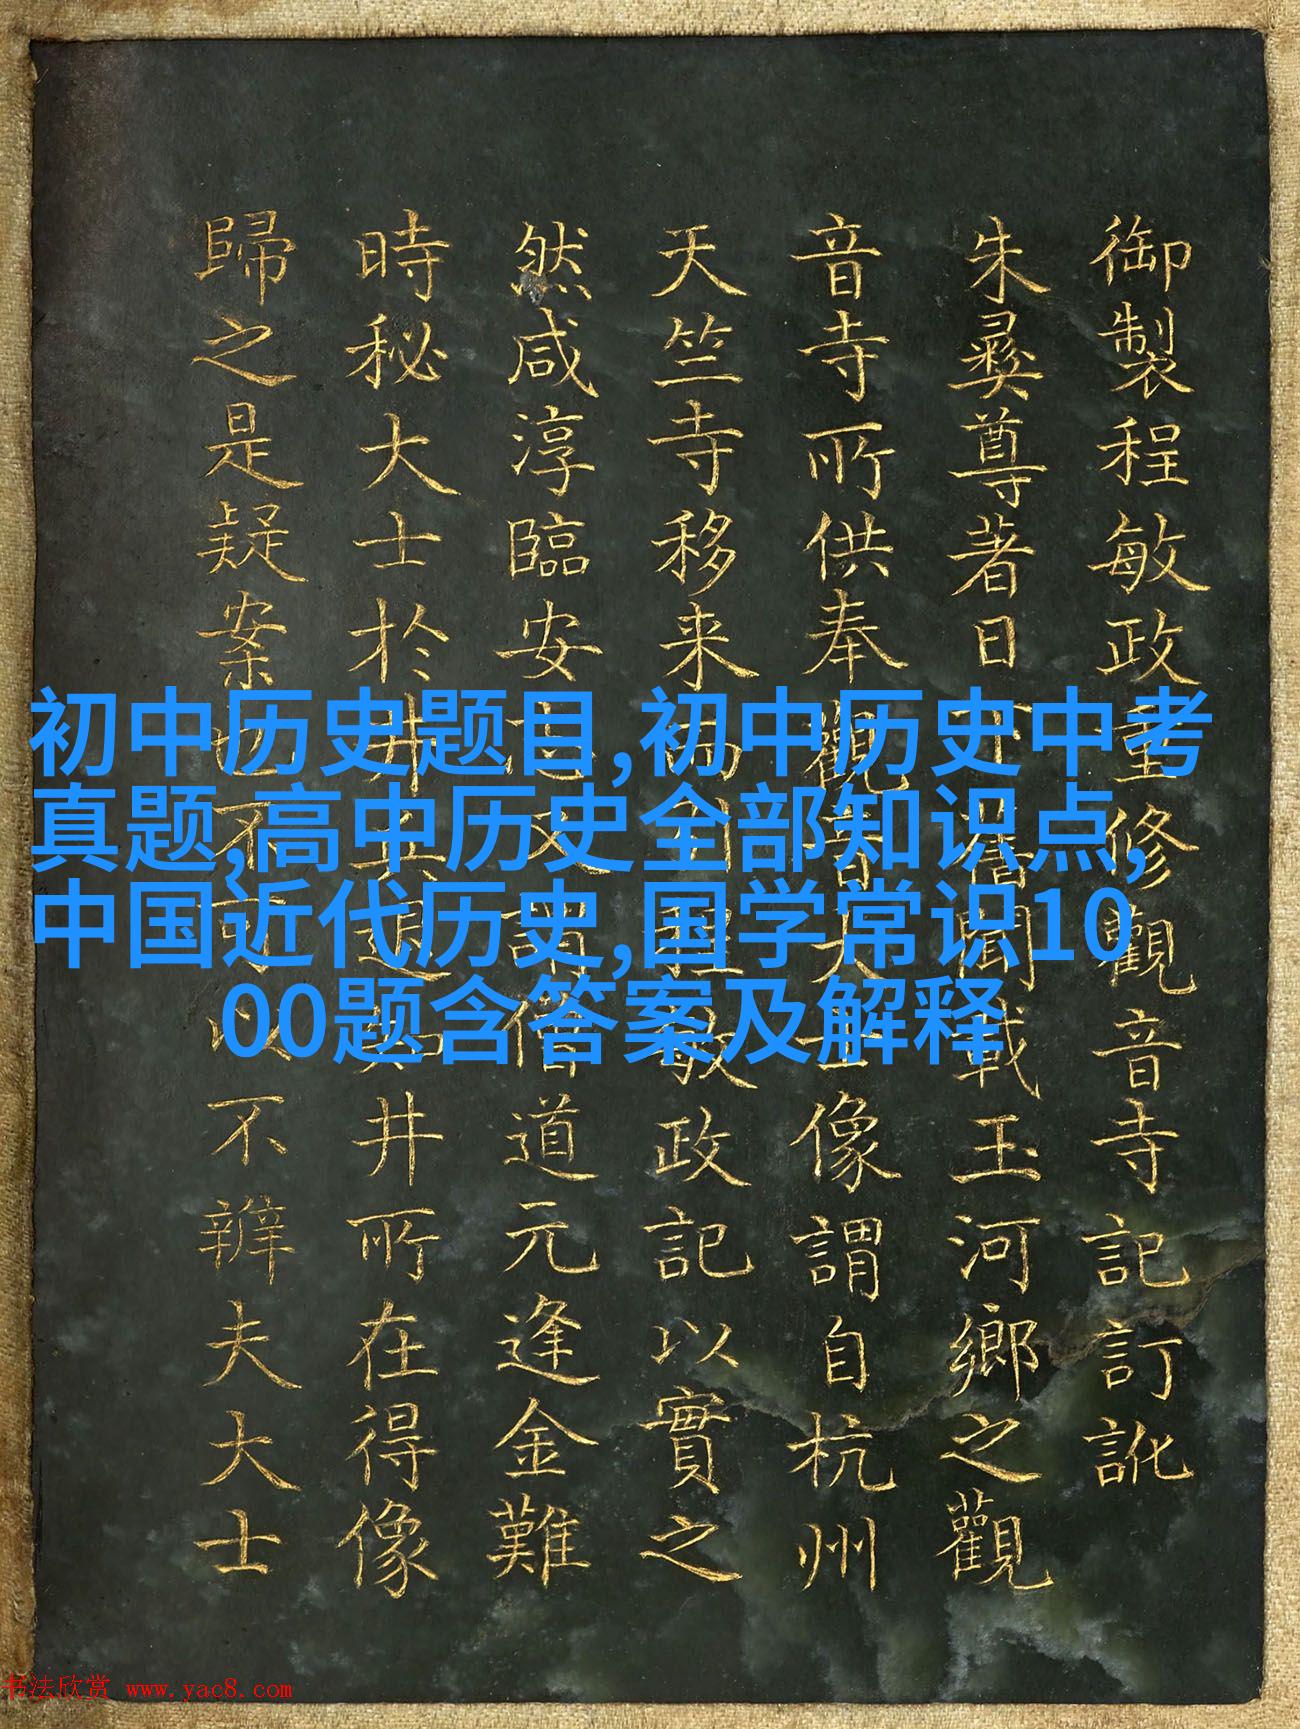 御製程敏政重修觀音寺記訂訛
朱彝尊著日下舊聞載玉河鄉之觀
音寺所供奉觀音大士像謂自杭州
天竺寺移来引程敏政記以實之
然咸淳臨安志又謂僧道元逢金難
時秘大士於井兵退井所在得像
歸之是疑案也不可以不辨夫大士
初中历史题目,初中历史中考
真题,高中历史全部知识点,
中国近代历史,国学常识10
00题含答案及解释
书法欣赏 www.yac8.com